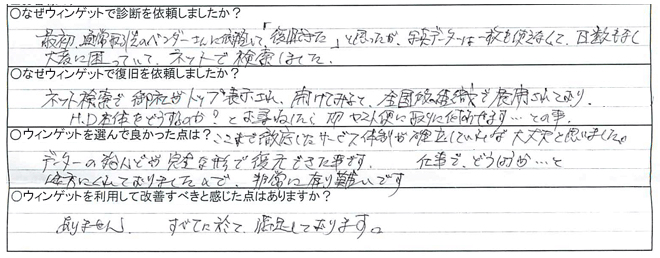 ○なぜウィンゲットで診断を依頼しましたか？
最初、通常取引先のベンダーさんに依頼して、「復旧できた」と思ったが、写真データーは一枚も使えなくて、日数もなく
大変に困っていて、ネットで検索しました。
○なぜウィンゲットで復旧を依頼しましたか？
ネット検索で御社がトップ表示され、開けてみると、全国的組織で展開されており、
H.D本体をどうするのか？とお尋ねしたら
○ウィンゲットを選んで良かった点は？ ここまで徹底したサービス体制が確立していれば大丈夫と思いました。
データーの殆んどが完全な形で復元できた事です。 仕事で、どうしようか…と
途方にくれておりましたので、非常に有り難いです
○ウィンゲットを利用して改善すべきと感じた点はありますか？
ありません。 すべてに於て、満足しております。